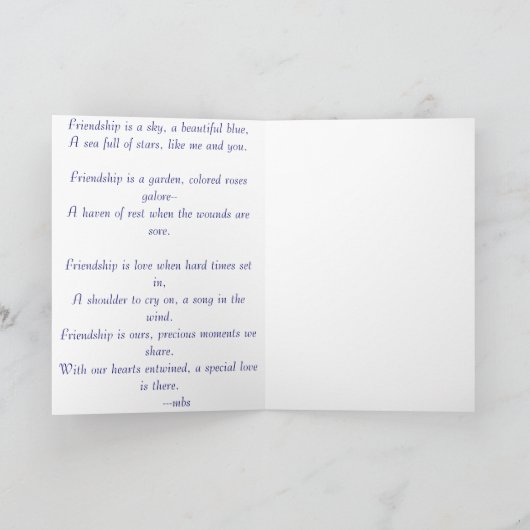 Friendship is a sky, a beautiful blue,
A sea full of stars, like me and you.
Friendship is a garden, colored roses
galore--
A haven of rest when the wounds are
sore.
Friendship is love when hard times set
in,
A shoulder to cry on, a song in the
wind.
Friendship is ours, precious moments we
share.
With our hearts entwined, a special love
is there.
---mbs